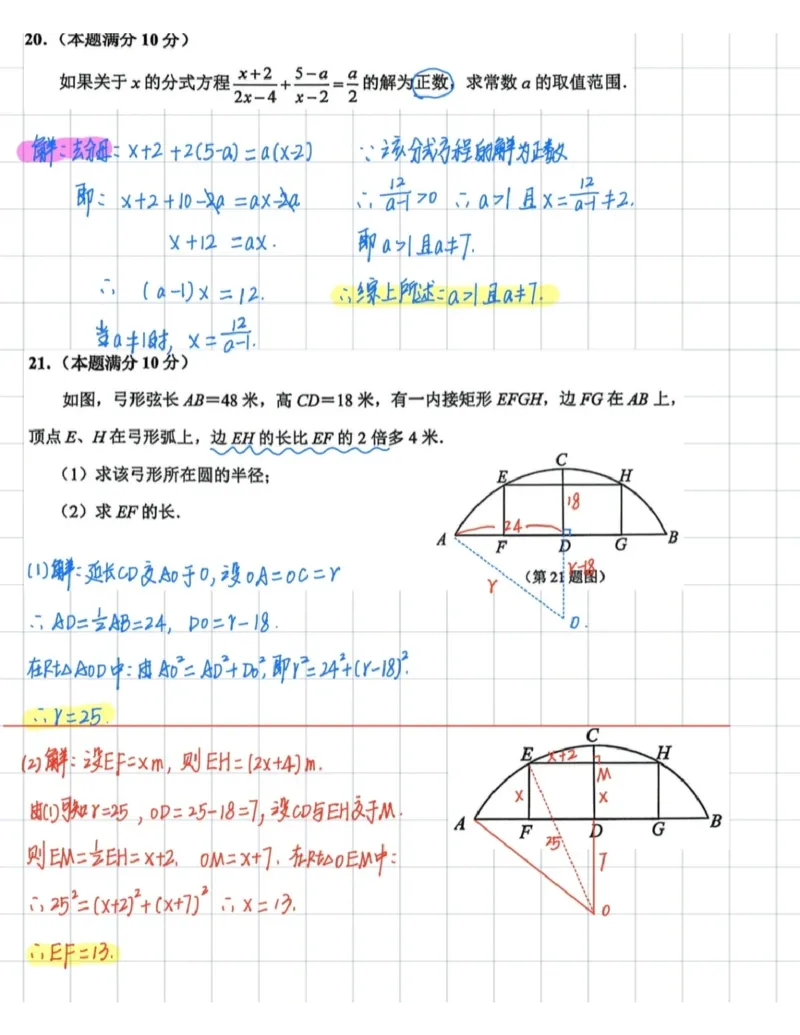 20.（本题满分 10 分）
如果关于 x 的分式方程 (x+2)/(2x−4) + (5−a)/(x−2) = a/2 的解为正数，求常数 a 的取值范围.
解：去分母：x+2+2(5-a)=a(x-2)
即：x+2+10-2a=ax-2a
x+12=ax.
∴ (a-1)x=12.
当a≠1时, x=12/(a-1).
∵该分式方程的解为正数
∴ 12/(a-1)>0 ∴ a>1 且 x=12/(a-1)≠2.
即 a>1且a≠7.
∴综上所述：a>1且a≠7.
21.（本题满分 10 分）
如图，弓形弦长 AB＝48 米，高 CD＝18 米，有一内接矩形 EFGH，边 FG 在 AB 上，
顶点 E、H 在弓形弧上，边 EH 的长比 EF 的 2 倍多 4 米.
（1）求该弓形所在圆的半径；
（2）求 EF 的长.
C
E H
18
24
A F D G B
r r-18
（第 21 题图）
O.
(1)解：延长CD交AO于O, 设OA=OC=r
∴ AD=½AB=24, DO=r-18.
在Rt△AOD中：由AO²=AD²+DO², 即r²=24²+(r-18)².
∴ r=25.
(2)解：设EF=xm, 则EH=(2x+4)m.
由(1)可知r=25, OD=25-18=7, 设CD与EH交于M.
则EM=½EH=x+2. OM=x+7. 在Rt△OEM中：
∴ 25²=(x+2)²+(x+7)² ∴ x=13.
∴ EF=13.
C
E x+2 H
M
x x
A F D G B
25 7
O